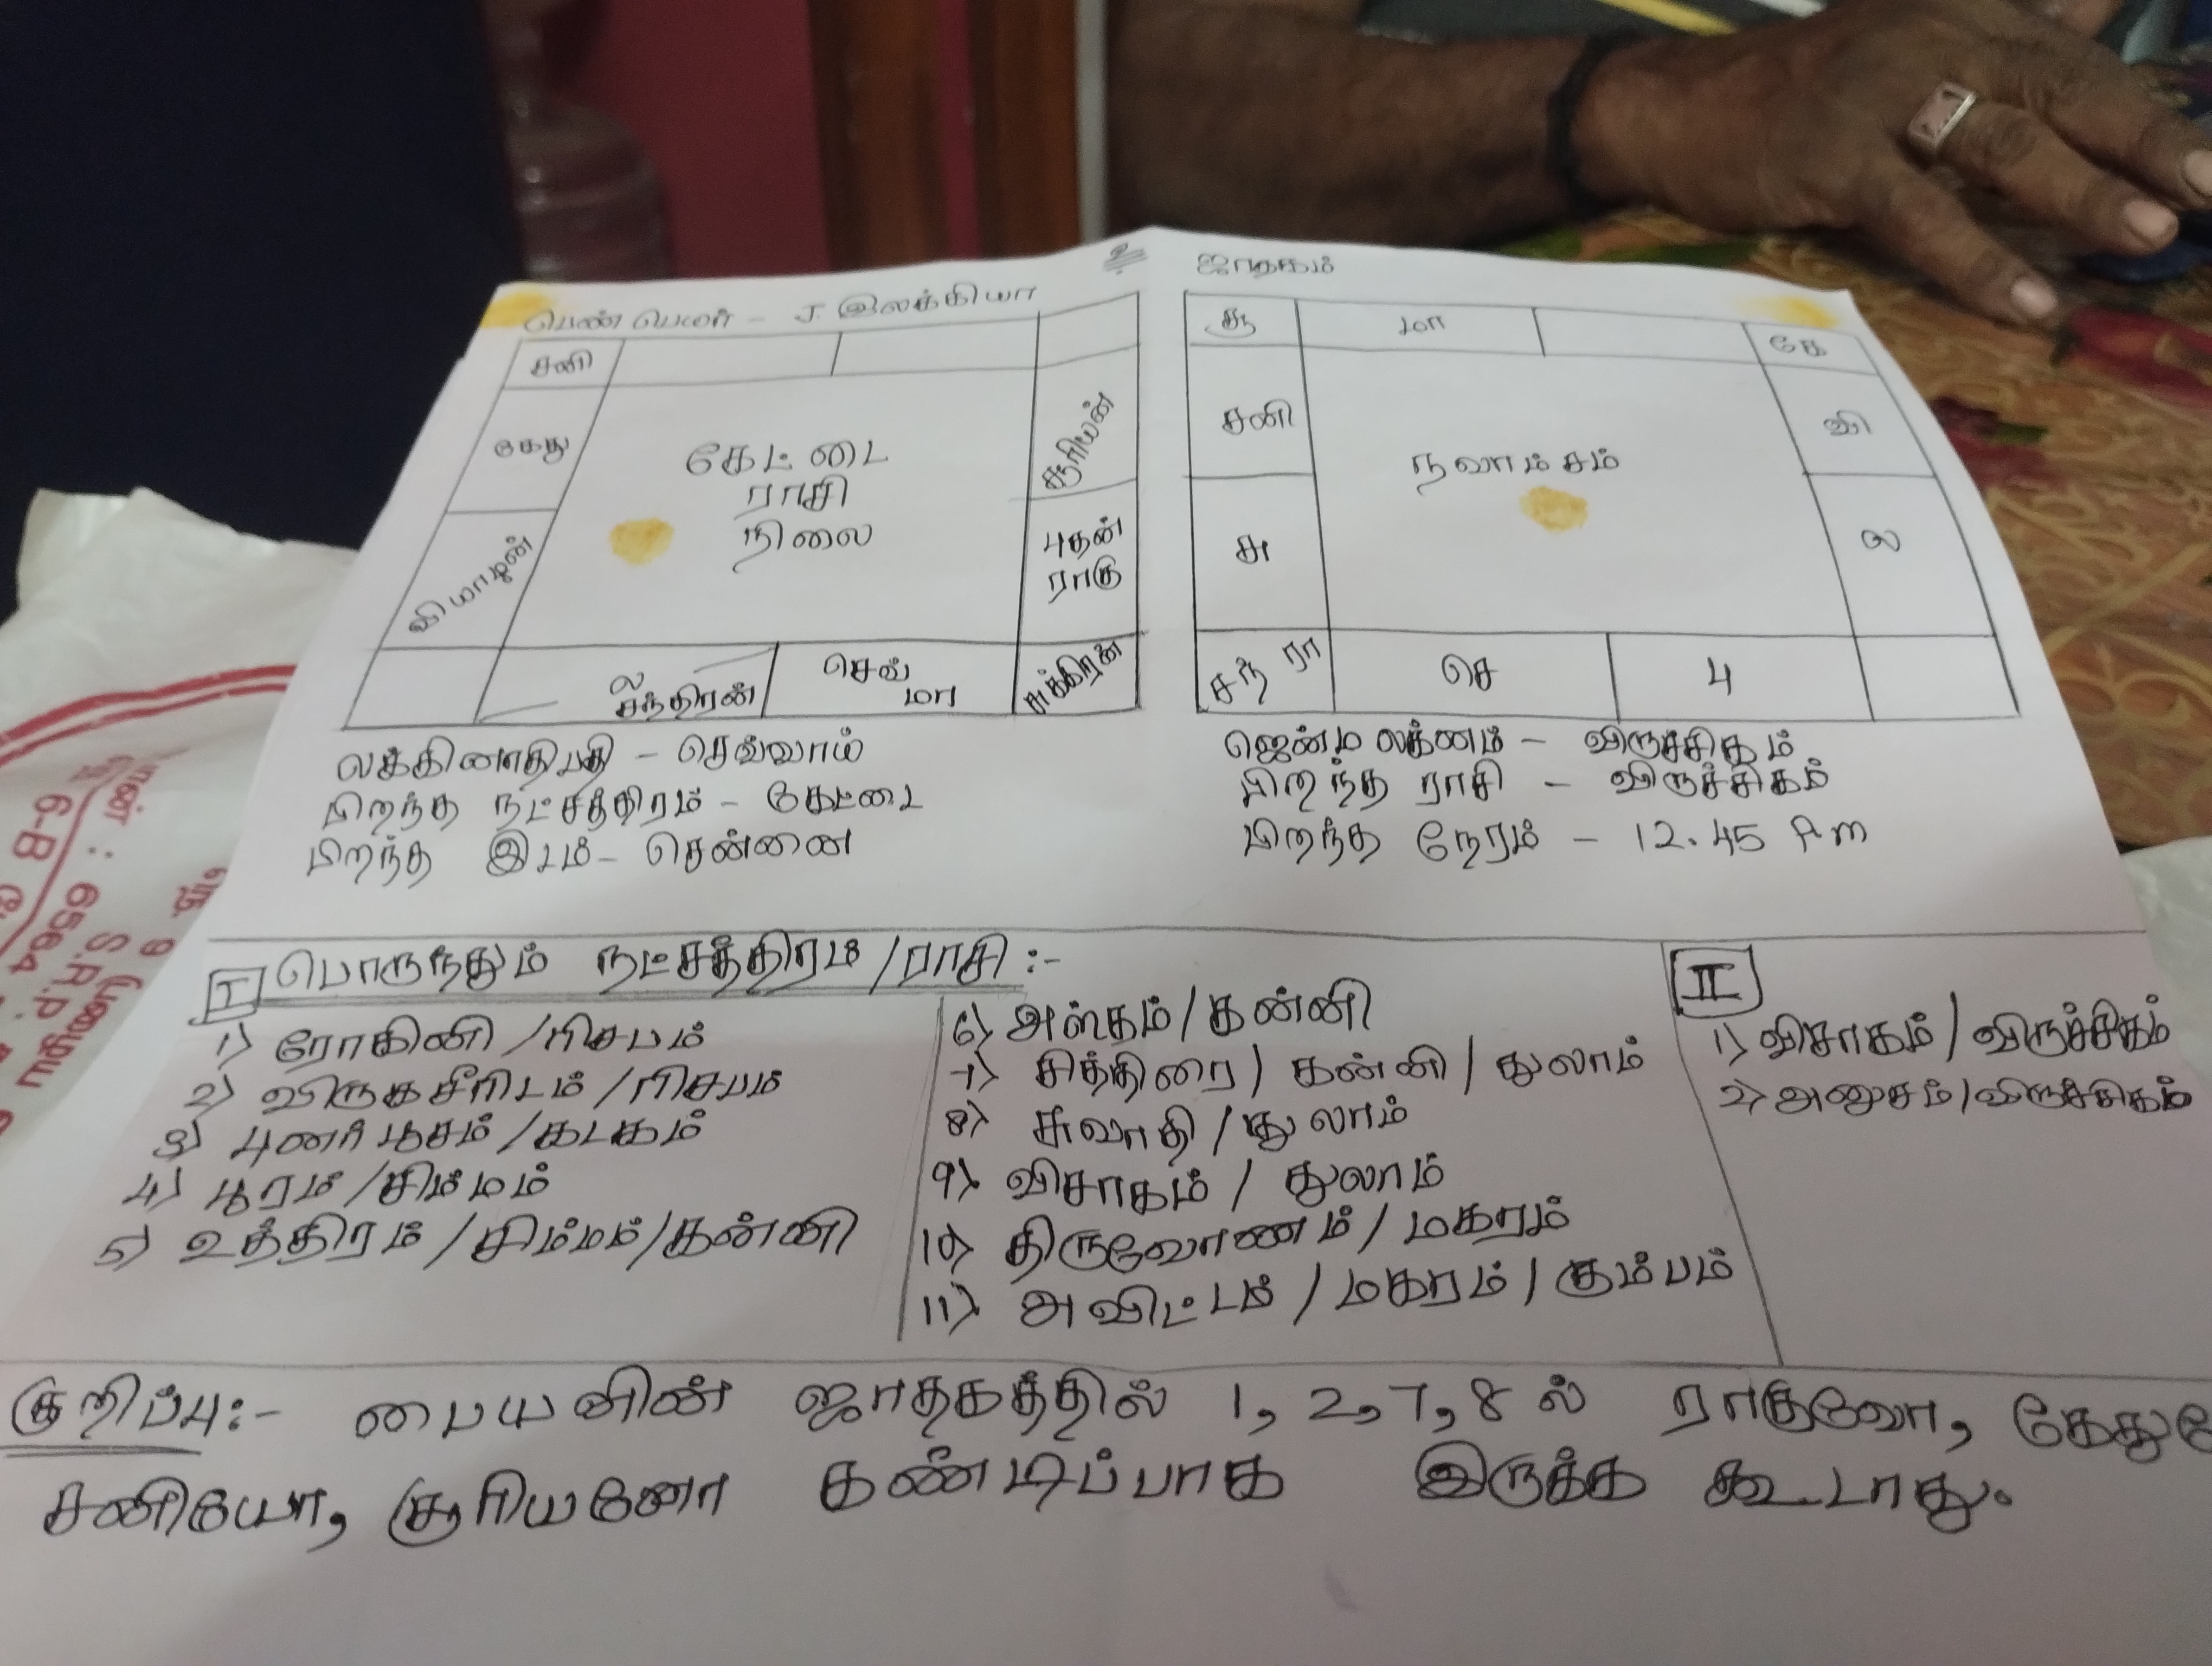 உ
ஜாதகம்
பெண் பெயர் - J. இலக்கியா
சனி
கேது
வியாழன்
கேட்டை
ராசி
நிலை
சூரியன்
புதன்
ராகு
ல
சந்திரன்
செவ்
மா
சுக்கிரன்
சூ
மா
கே
சனி
நவாம்சம்
வி
சு
ல
சந் ரா
செ
பு
லக்கினாதிபதி - செவ்வாய்
பிறந்த நட்சத்திரம் - கேட்டை
பிறந்த இடம் - சென்னை
ஜென்ம லக்னம் - விருச்சிகம்
பிறந்த ராசி - விருச்சிகம்
பிறந்த நேரம் - 12.45 P.m
I பொருந்தும் நட்சத்திரம் / ராசி :-
1) ரோகினி / ரிசபம்
2) மிருகசீரிடம் / ரிசபம்
3) புனர்பூசம் / கடகம்
4) பூரம் / சிம்மம்
5) உத்திரம் / சிம்மம் / கன்னி
6) அஸ்தம் / கன்னி
7) சித்திரை / கன்னி / துலாம்
8) சுவாதி / துலாம்
9) விசாகம் / துலாம்
10) திருவோணம் / மகரம்
11) அவிட்டம் / மகரம் / கும்பம்
II
1) விசாகம் / விருச்சிகம்
2) அனுசம் / விருச்சிகம்
குறிப்பு :- பையனின் ஜாதகத்தில் 1, 2, 7, 8 ல் ராகுவோ, கேது
சனியோ, சூரியனோ கண்டிப்பாக இருக்க கூடாது.
6-B
6564
S.R.P.